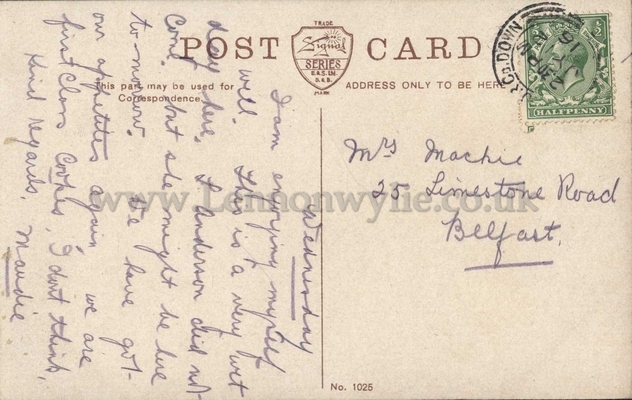 POST CARD
TRADE
Signal
SERIES
E.&S. Ltd.
D.&B.
MARK
This part may be used for
Correspondence.
ADDRESS ONLY TO BE HERE
Wednesday
I am enjoying myself
well. This is a very wet
day here. L. Anderson did not-
Come but she might be here
to-morrow. We have got-
our appetites again we are
first Class Cooks, I don't think,
Kind regards, Maudie.
Mrs Mackie
25 Limestone Road
Belfast.
HALFPENNY
Co. DOWN
www.Lennonwylie.co.uk
No. 1025